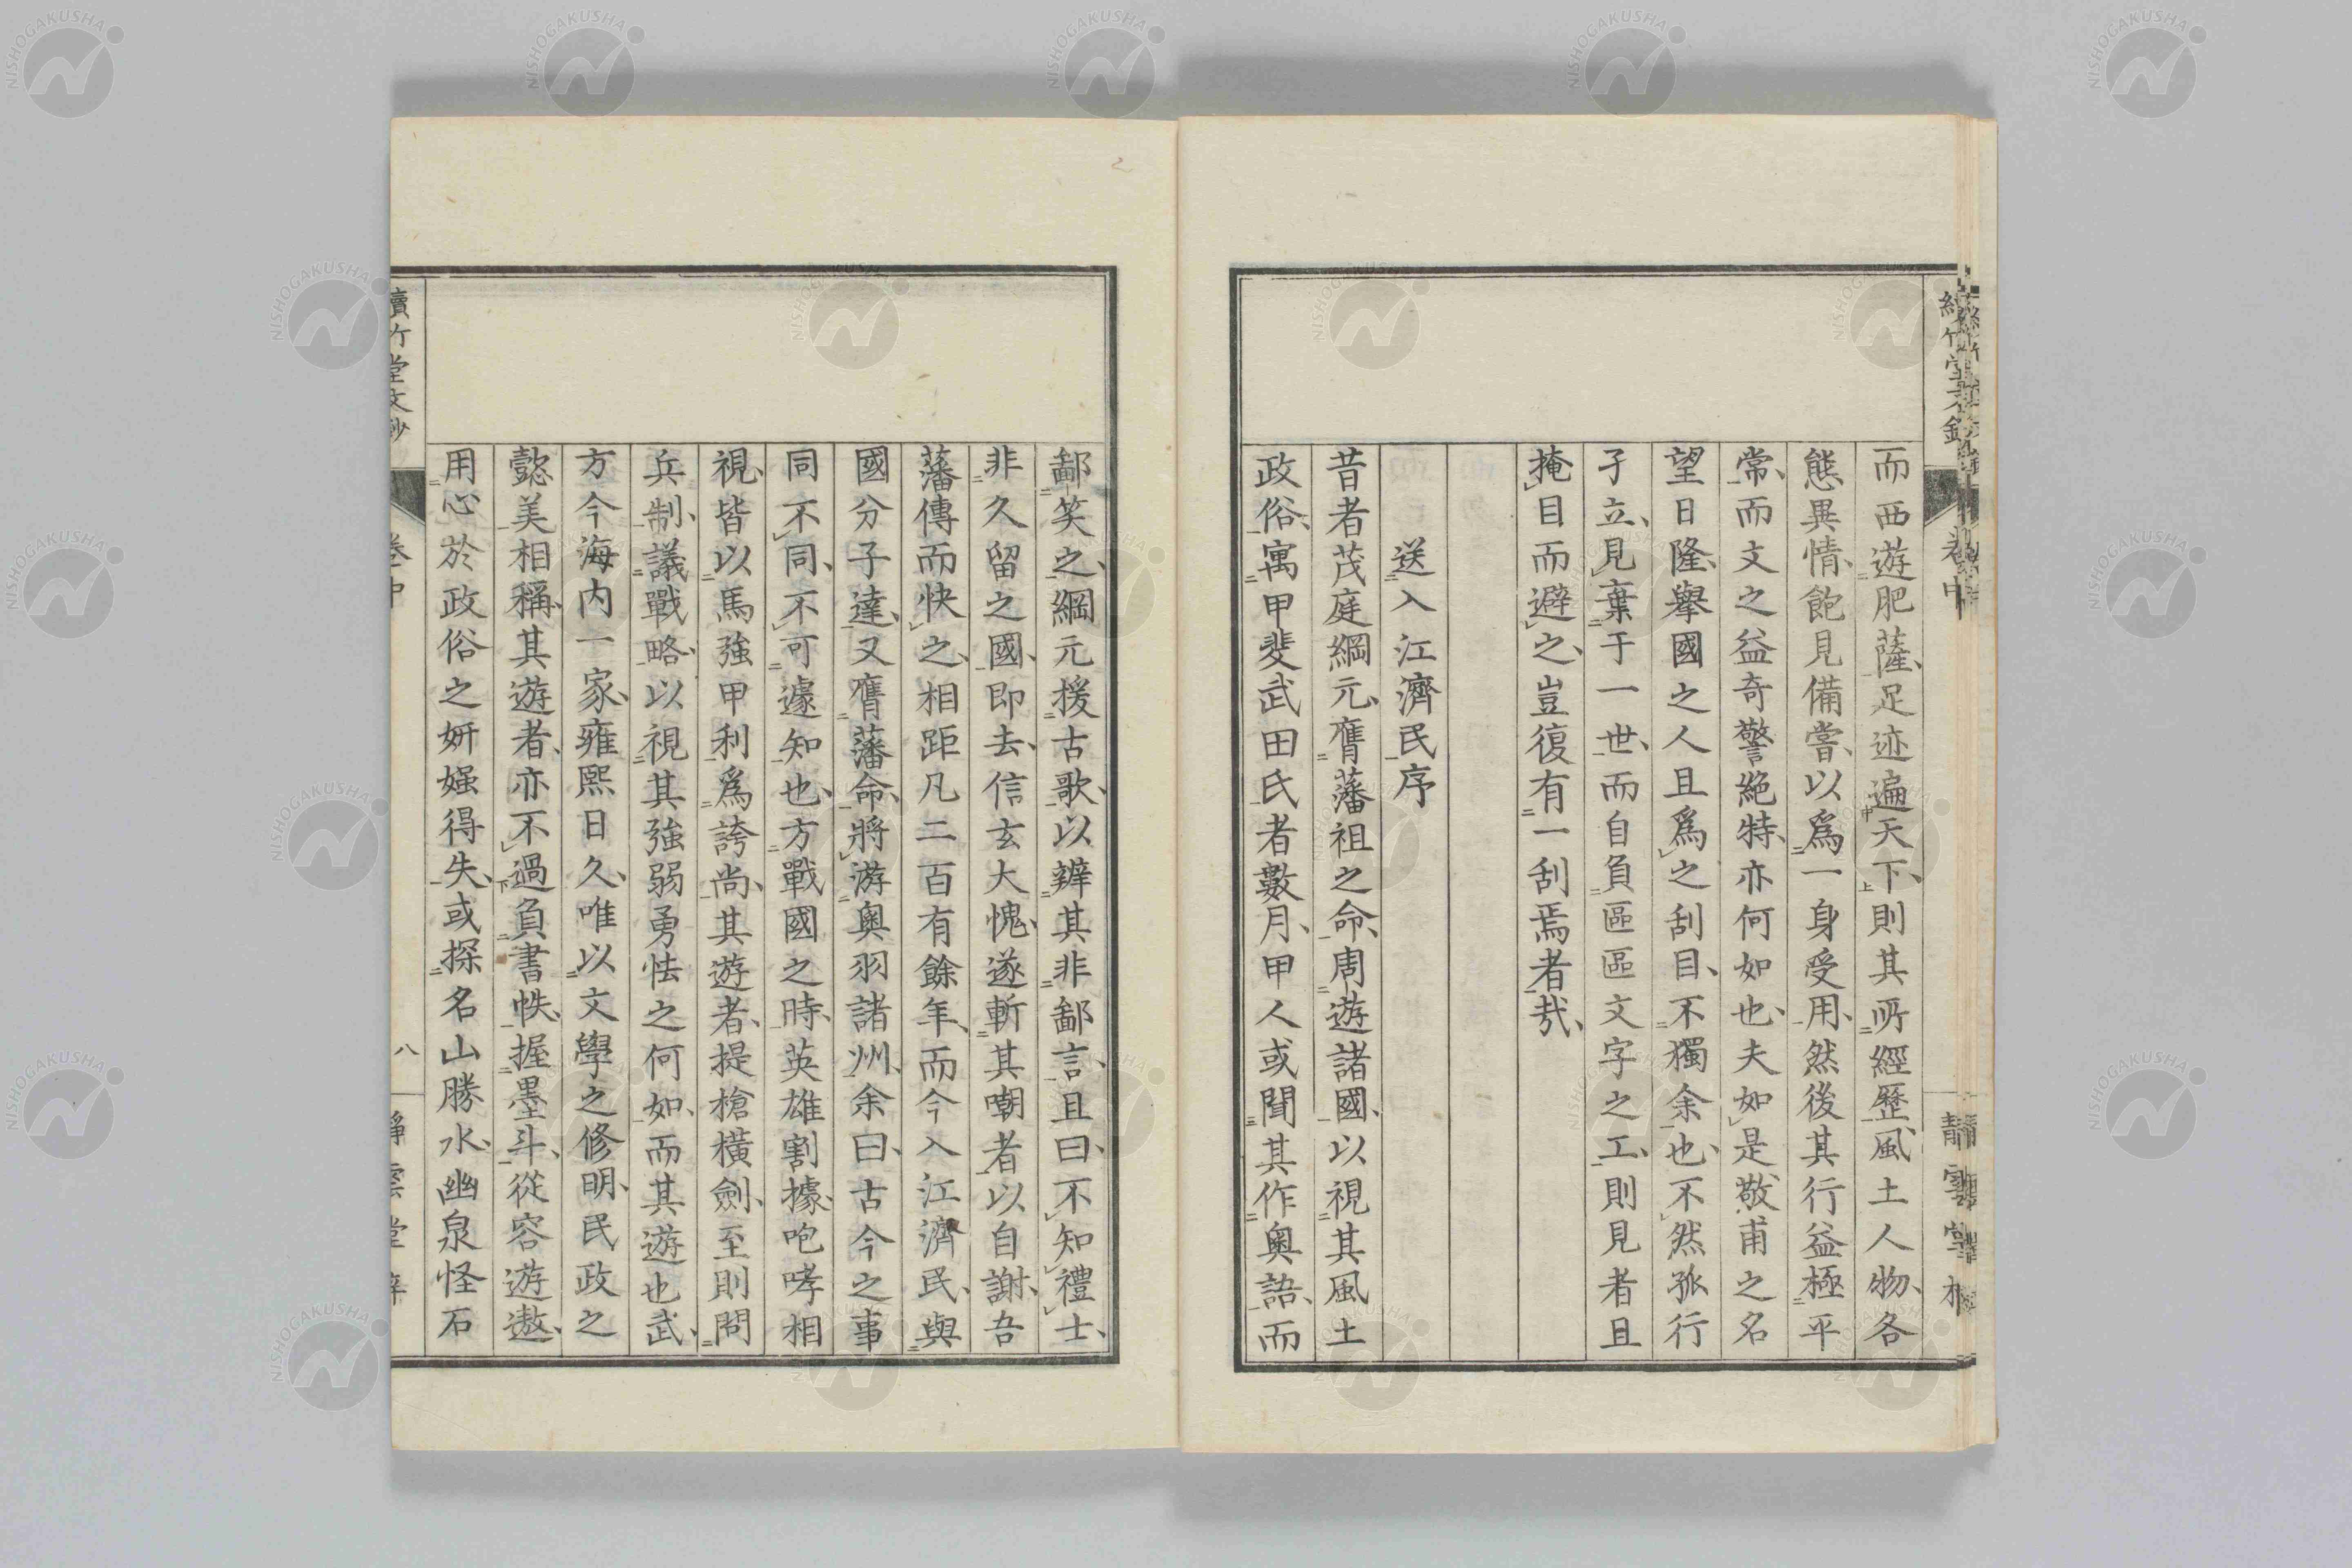 而西遊肥薩、足迹遍天下、則其所經歷、風土人物、各
態異情、飽見備嘗、以爲一身受用、然後其行益極平
常、而文之益奇警絶特、亦何如也、夫如是、敬甫之名
望日隆、擧國之人且爲之刮目、不獨余也、不然孤行
孑立、見棄于一世、而自負區區文字之工、則見者且
掩目而避之、豈復有一刮焉者哉、
送入江濟民序
昔者茂庭綱元、膺藩祖之命、周遊諸國、以視其風土
政俗、寓甲斐武田氏者數月、甲人或聞其作奧語、而
鄙笑之、綱元援古歌、以辨其非鄙言、且曰、不知禮士、
非久留之國、即去、信玄大愧、遂斬其嘲者以自謝、吾
藩傳而快之、相距凡二百有餘年、而今入江濟民、與
國分子達、又膺藩命、將游奧羽諸州、余曰、古今之事
同不同、不可遽知也、方戰國之時、英雄割據、咆哮相
視、皆以馬強甲利爲誇尚、其遊者、提槍横劍、至則問
兵制、議戰略、以視其強弱勇怯之何如、而其遊也武、
方今海内一家、雍熙日久、唯以文學之修明、民政之
懿美相稱、其遊者、亦不過負書帙、握墨斗、從容遊遨、
用心於政俗之妍媸得失、或探名山勝水、幽泉怪石
續竹堂文鈔
卷中
八
靜雲堂梓
NISHOGAKUSHA